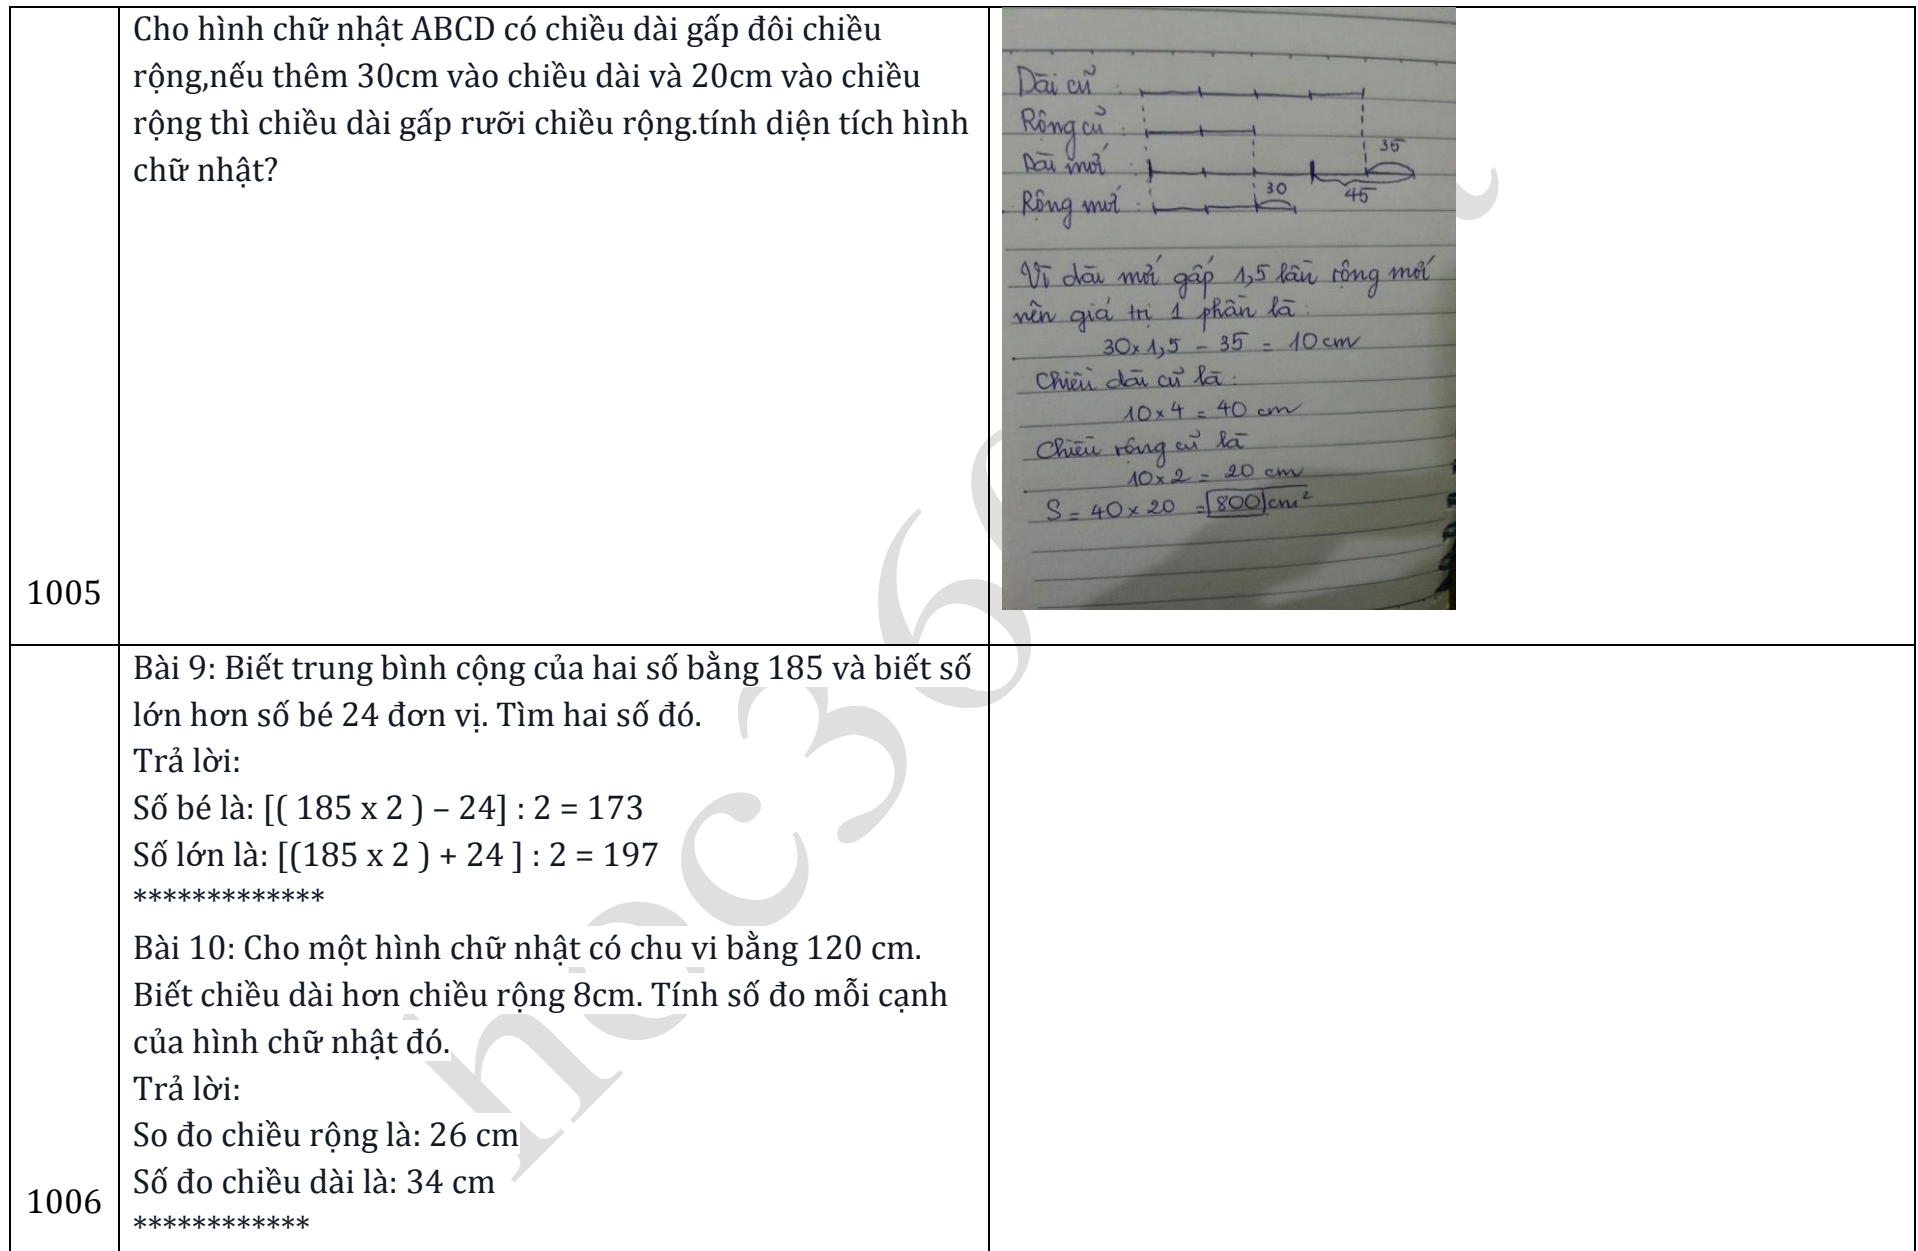 Cho hình chữ nhật ABCD có chiều dài gấp đôi chiều
rộng,nếu thêm 30cm vào chiều dài và 20cm vào chiều
rộng thì chiều dài gấp rưỡi chiều rộng.tính diện tích hình
chữ nhật?
1005
Dài cũ :
Rộng cũ :
Dài mới :
35
45
Rộng mới :
30
Vì dài mới gấp 1,5 lần rộng mới
nên giá trị 1 phần là :
30x 1,5 - 35 = 10 cm
Chiều dài cũ là :
10 x 4 = 40 cm
Chiều rộng cũ là
10 x 2 = 20 cm
S = 40 x 20 = 800 cm²
Bài 9: Biết trung bình cộng của hai số bằng 185 và biết số
lớn hơn số bé 24 đơn vị. Tìm hai số đó.
Trả lời:
Số bé là: [( 185 x 2 ) – 24] : 2 = 173
Số lớn là: [(185 x 2 ) + 24 ] : 2 = 197
*************
Bài 10: Cho một hình chữ nhật có chu vi bằng 120 cm.
Biết chiều dài hơn chiều rộng 8cm. Tính số đo mỗi cạnh
của hình chữ nhật đó.
Trả lời:
So đo chiều rộng là: 26 cm
Số đo chiều dài là: 34 cm
************
1006